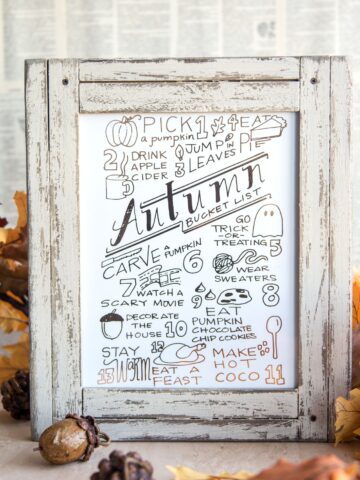 PICK 1 4 EAT
a pumpkin PIE
2 DRINK APPLE CIDER
JUMP IN 3 LEAVES
Autumn
BUCKET LIST
GO TRICK
-OR-
TREATING 5
CARVE A PUMPKIN 6
7 WATCH A
SCARY MOVIE
WEAR
SWEATERS 8
DECORATE
THE
HOUSE 10
9 EAT
PUMPKIN
CHOCOLATE
CHIP COOKIES
STAY
13 Warm
12 EAT A
FEAST
MAKE
HOT
COCO 11